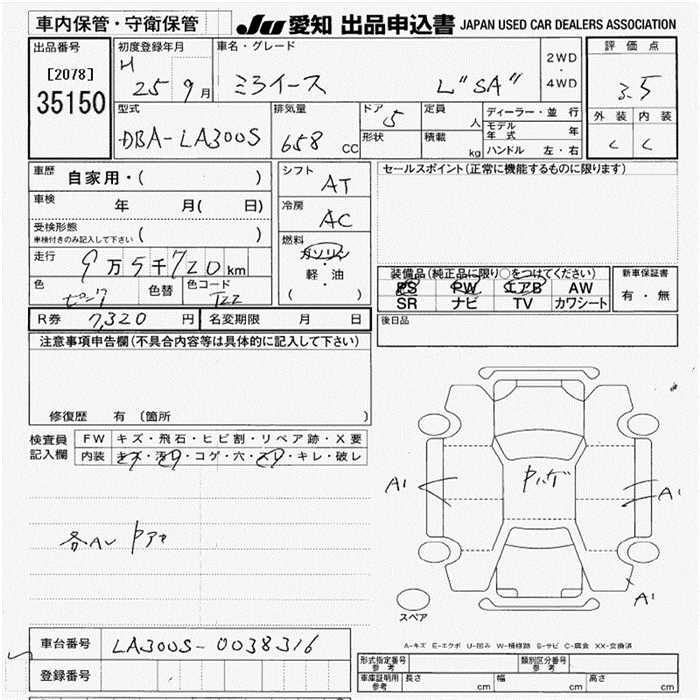 車内保管・守衛保管 JU 愛知 出品申込書 JAPAN USED CAR DEALERS ASSOCIATION
出品番号 初度登録年月 車名・グレード 2WD・4WD 評価点
[2078] H 25年 9月 ミライース L"SA" 3.5
35150 型式 排気量 ドア 5 定員 人 ディーラー・並行 外装 内装
DBA-LA300S 658 CC 形状 積載 kg モデル年式 年 C C
ハンドル 左・右
車歴 自家用・( ) シフト AT セールスポイント(正常に機能するものに限ります)
車検 年 月( 日) 冷房 AC
受検形態
車検付きのみ記入して下さい ( ) 燃料 ガソリン・軽・油 ( )
走行 9万5千720km 装備品(純正品に限り○をつけてください) 新車保証書
色 ピンク 色替 色コード T22 PS PW エアB AW 有・無
SR ナビ TV カワシート
R券 7,320円 名変期限 月 日 後日品
注意事項申告欄(不具合内容等は具体的に記入して下さい)
修復歴 有(箇所 )
検査員記入欄 FW キズ・飛石・ヒビ割・リペア跡・X要
内装 キズ・汚リ・コゲ・穴・スリ・キレ・破レ
A1 A1
A1
スペア
A-キズ E-エクボ U-凹み W-補修跡 S-サビ C-腐食 XX-交換済
車台番号 LA300S-0038316
登録番号
形式指定番号 参考 類別区分番号 参考
車庫証明用 参考 長さ cm 幅 cm 高さ cm